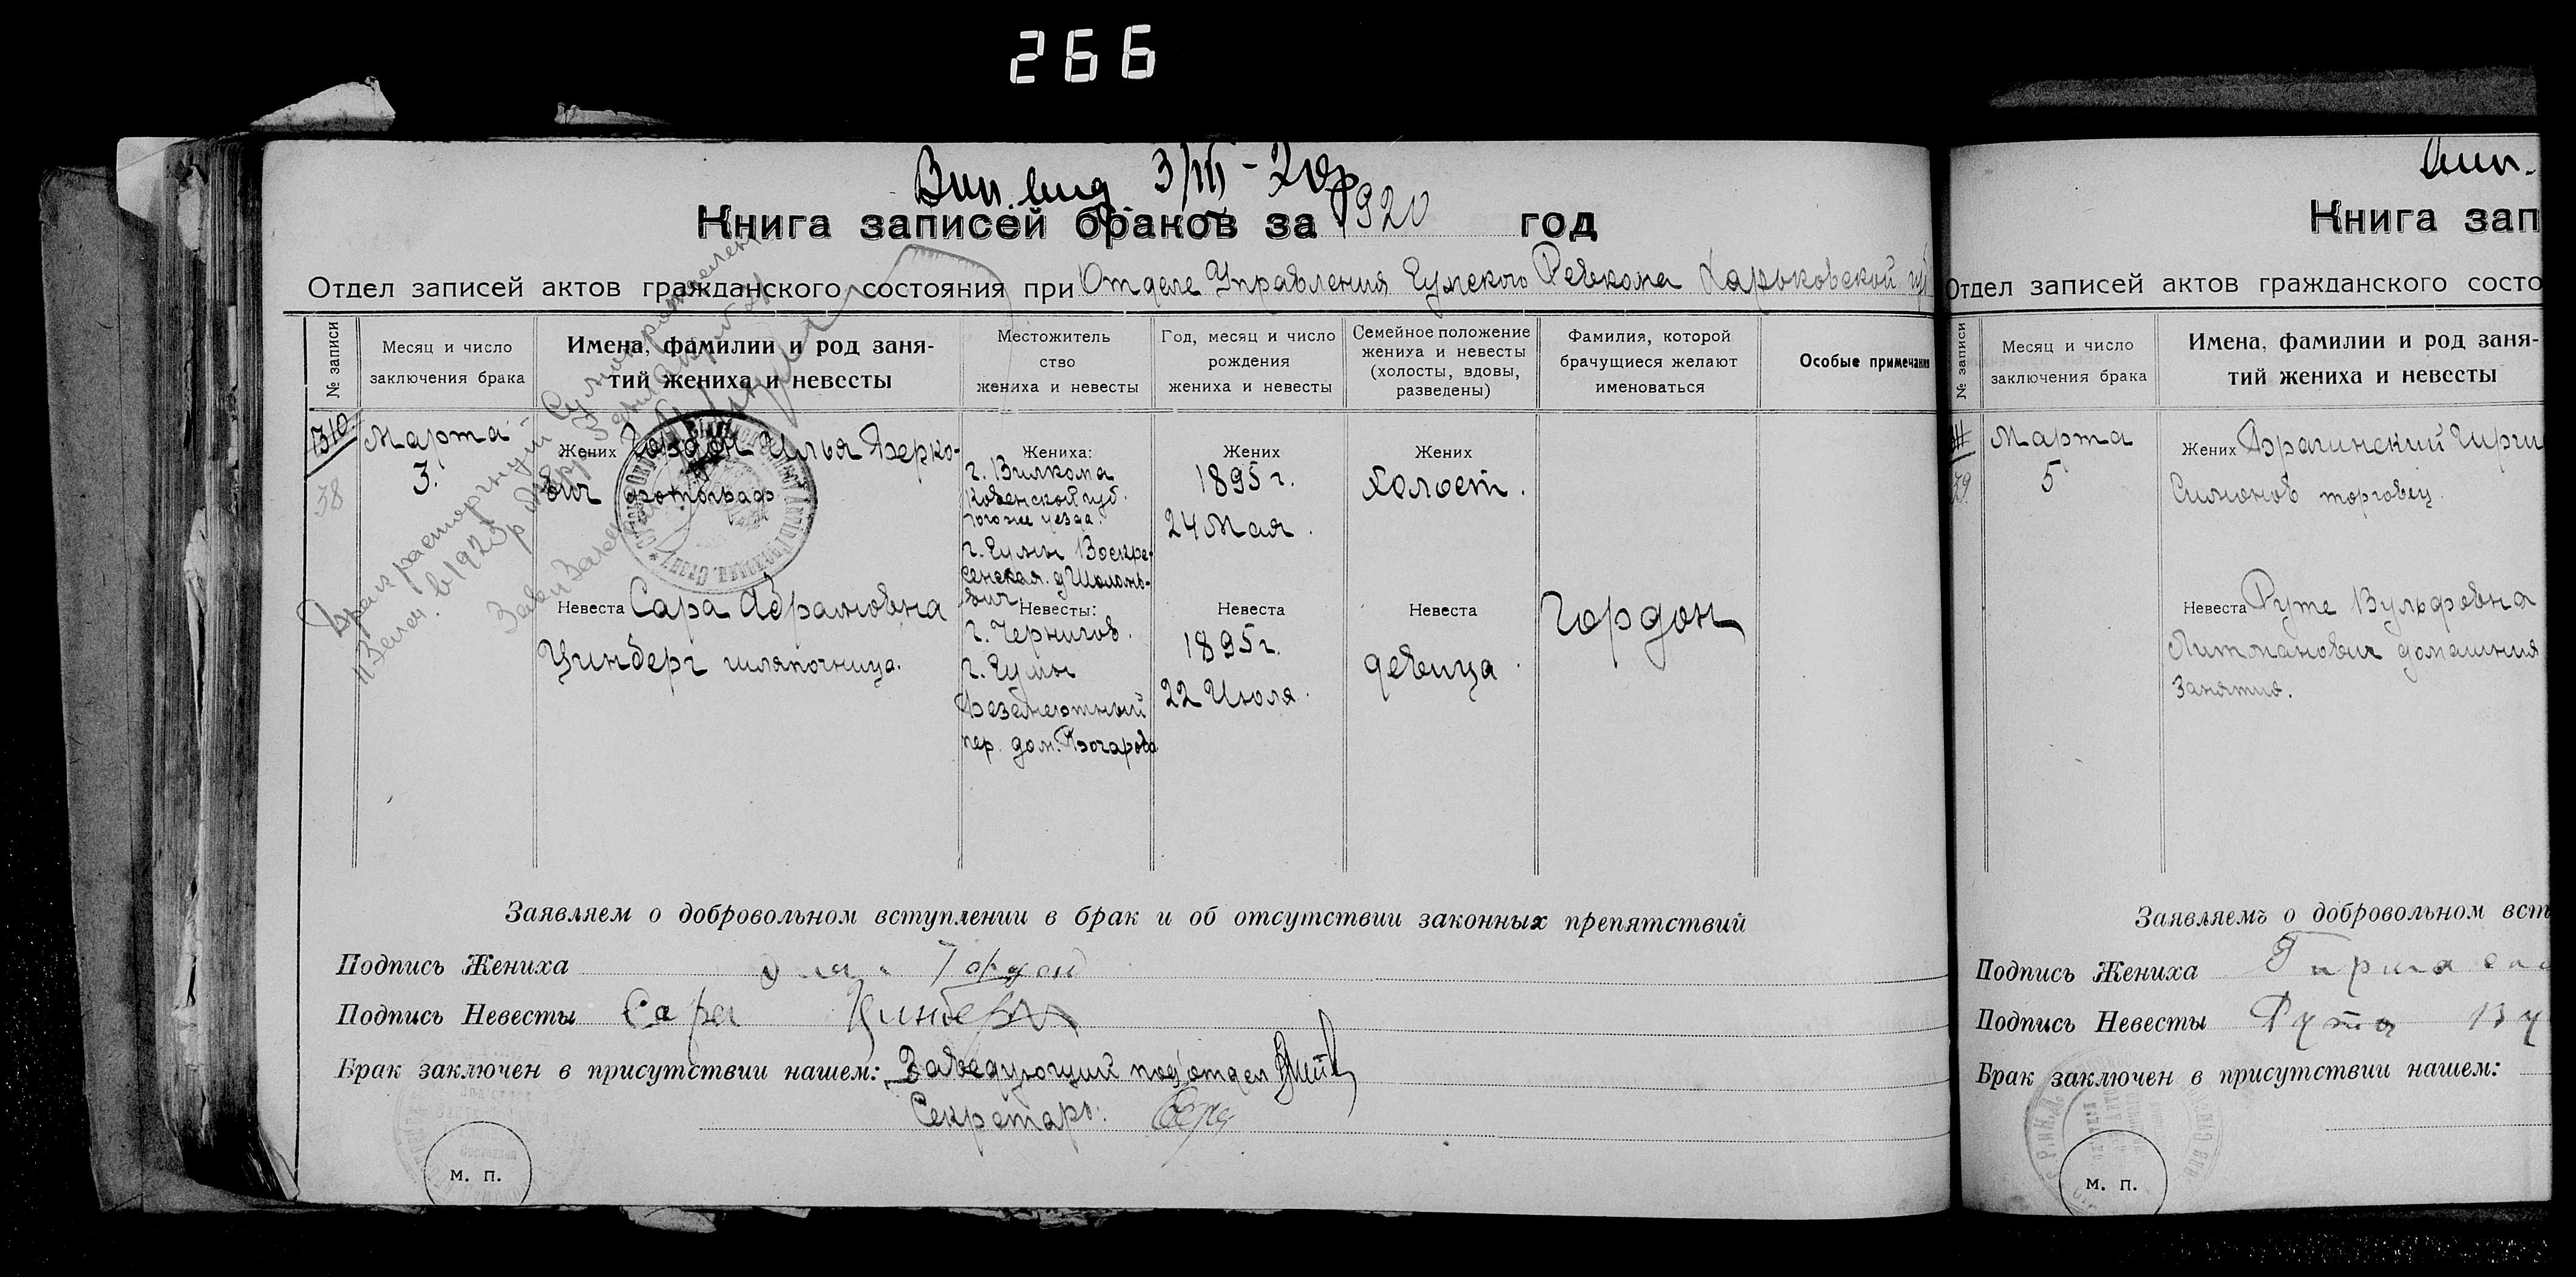 266
Вип. вид 3/III-20р
Книга записей браков за 1920 год
Отдел записей актов гражданского состояния при Отделе Управления Сумского Ревкома Харьковской губ
№ записи
Месяц и число
заключения брака
Имена, фамилии и род заня-
тий жениха и невесты
Местожитель
ство
жениха и невесты
Год, месяц и число
рождения
жениха и невесты
Семейное положение
жениха и невесты
(холосты, вдовы,
разведены)
Фамилия, которой
брачущиеся желают
именоваться
Особые примечания
310
38
Марта
3.
Жених Гордон Илья Берко-
вич фотограф
Невеста Сара Абрамовна
Цинберг шляпочница.
Жениха:
г. Вилкома
Ковенской губ.
того же уезда.
г. Сумы Воскре-
сенская. д Шоломо-
вич
Невесты:
г. Чернигов.
г. Сумы
пер. дом.
Жених
1895 г.
24 Мая.
Невеста
1895 г.
22 Июля.
Жених
Холост.
Невеста
девица.
Гордон
Брак расторгнут Сумск
в 1923 р
Заявляем о добровольном вступлении в брак и об отсутствии законных препятствий
Подпись Жениха Илья Гордон
Подпись Невесты Сара Цинберг
Брак заключен в присутствии нашем: Заведующий под'отдел
Секретарь:
м. п.
Вип.
Книга зап
Отдел записей актов гражданского состо
№ записи
Месяц и число
заключения брака
Имена, фамилии и род заня-
тий жениха и невесты
39
Марта
5
Жених Брагинский Гирш
Симонов торговец.
Невеста Руте Вульфовна
Литманович домашния
занятия.
Заявляемъ о добровольном вст
Подпись Жениха Гирша
Подпись Невесты Рута Ву
Брак заключен в присутствии нашем:
м. п.